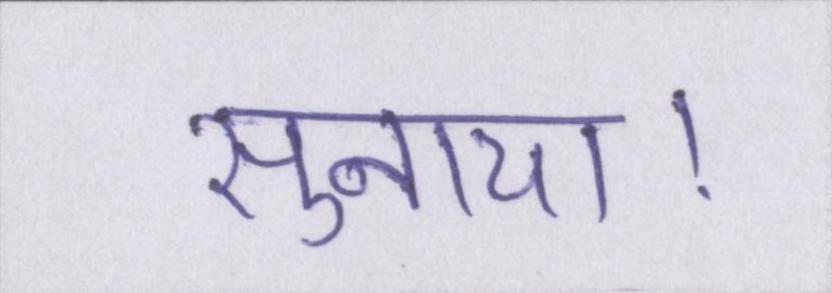 सुनाया!